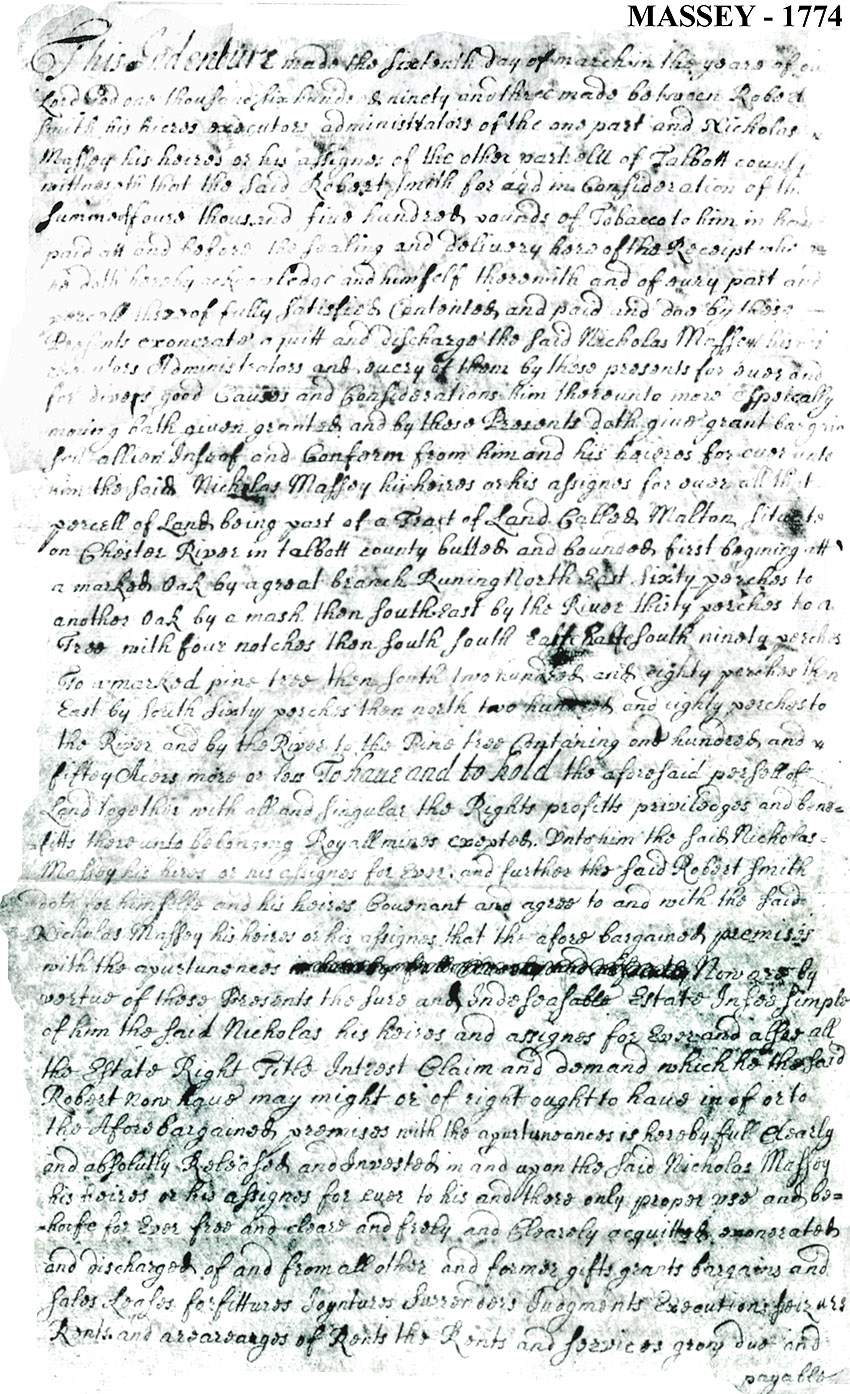 MASSEY - 1774
This Indenture made the sixtenth day of march in the yeare of ou
Lord God one thousand six hundred ninety and three made between Robert
Smith his hieres executors administrators of the one part and Nicholas
Massey his heires or his assignes of the other part all of Talbott county
wittnesseth that the said Robert Smith for and in Consideration of the
summe of foure thousand five hundred pounds of Tobacco to him in hand
paid att and before the sealing and delivery here of the Receipt whe
he doth hereby acknowledge and himself therewith and of every part and
percell thereof fully satisfied Contented and paid and doe by these
Presents exonerate aquitt and discharge the said Nicholas Massey his
Administrators and every of them by these presents for ever and
for divers good Causes and Considerations him thereunto more Especially
moving hath given granted and by these Presents doth give grant bargain
sell allien Infeof and Conform from him and his heieres for ever unto
him the said Nicholas Massey his heires or his assignes for ever all that
percell of Land being part of a Tract of Land Called Malton situate
on Chester River in talbott county butted and bounded first begining att
a marked Oak by a great branch Runing North East sixty perches to
another Oak by a mash then South East by the River thirty perches to a
Tree with four notches then south south East South ninety perches
To a marked pine tree then south two hundred and eighty perches then
East by South sixty perches then north two hundred and eighty perches to
the River and by the River to the Pine tree Containing one hundred and
fiftey Acers more or less To have and to hold the aforesaid persell of
Land together with all and singular the Rights profitts priviledges and bene=
fitts there unto belonging Royall mines exepted. Unto him the said Nicholas
Massey his hires or his assignes for Ever. and further the said Robert Smith
doth for himselfe and his heires Covenant and agree to and with the said
Nicholas Massey his heires or his assignes that the afore bargained premisis
with the apurtunences Now are by
vertue of these Presents the sure and Indefeasable Estate In fee simple
of him the said Nicholas his heires and assignes for Ever and allso all
the Estate Right Title Intrest Claim and demand which he the said
Robert now have may might or of right ought to have in of or to
the Afore bargained premises with the apurtuneances is hereby full Clearly
and absolutly Released and Invested in and upon the said Nicholas Massey
his heires or his assignes for ever to his and there only proper use and be=
hoife for Ever free and cleare and frely and Clearely acquitted exonerated
and discharged of and from all other and former gifts grants bargains and
sales Leases forfittures Joyntures Surrenders Judgments Executions seizurs
Rents and arearearges of Rents the Rents and services grow due and
payable